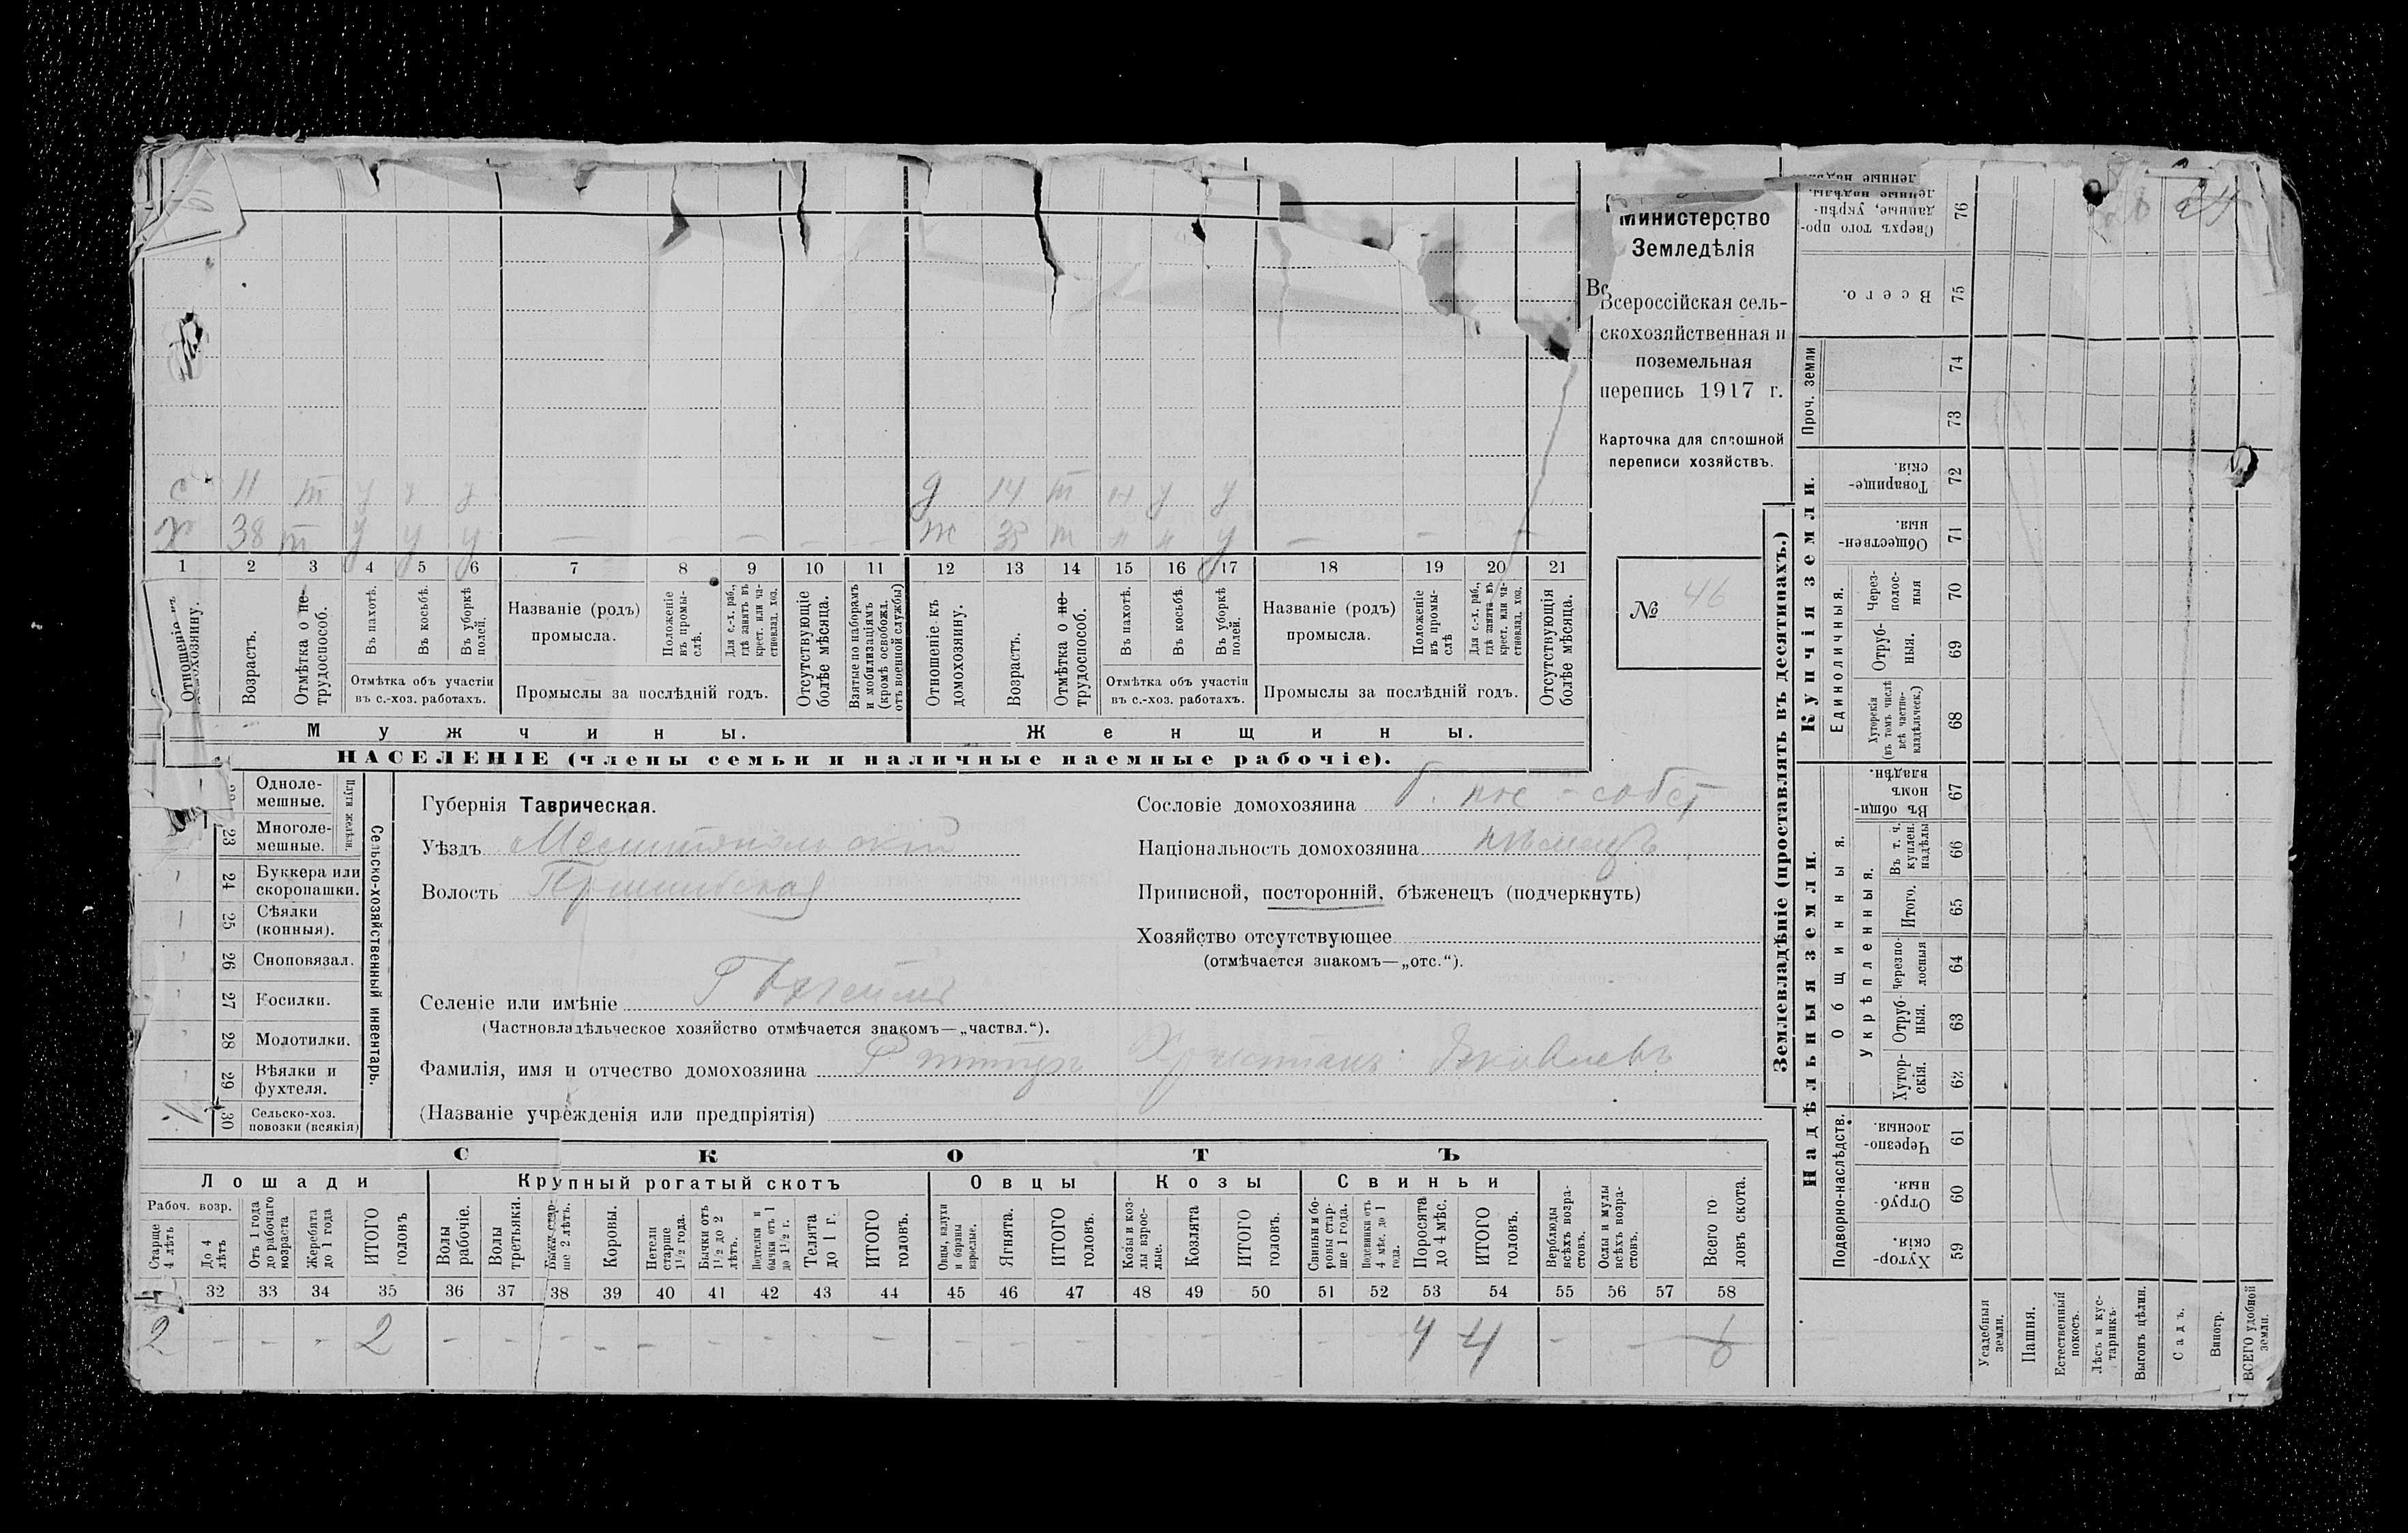 Министерство
Земледѣлія
Всероссійская сель-
скохозяйственная и
поземельная
перепись 1917 г.
Карточка для сплошной
переписи хозяйствъ.
№ 46
с 11 т у у у
х 38 т у у у — — — — —
д 14 т н у у
ж т н н у — — —
1 2 3 4 5 6 7 8 9 10 11 12 13 14 15 16 17 18 19 20 21
Отношеніе къ домохозяину.
Возрастъ.
Отмѣтка о не-трудоспособ.
Въ пахотѣ.
Въ косьбѣ.
Въ уборкѣ полей.
Отмѣтка объ участіи
въ с.-хоз. работахъ.
Названіе (родъ)
промысла.
Положеніе въ промы-слѣ.
Для с.-х. раб., гдѣ занятъ въ крест. или ча-стновлад. хоз.
Промыслы за послѣдній годъ.
Отсутствующіе болѣе мѣсяца.
Взятые по наборамъ и мобилизаціямъ (кромѣ освобожд. отъ военной службы)
Отношеніе къ домохозяину.
Возрастъ.
Отмѣтка о не-трудоспособ.
Въ пахотѣ.
Въ косьбѣ.
Въ уборкѣ полей.
Отмѣтка объ участіи
въ с.-хоз. работахъ.
Названіе (родъ)
промысла.
Положеніе въ промы-слѣ
Для с.-х. раб., гдѣ занята въ крест. или ча-стновлад. хоз.
Промыслы за послѣдній годъ.
Отсутствующія болѣе мѣсяца.
Мужчины.
Женщины.
НАСЕЛЕНІЕ (члены семьи и наличные наемные рабочіе).
Одноле-мешные.
23 Многоле-мешные.
Плуги желѣзн.
24 Буккера или скоропашки.
25 Сѣялки (конныя).
26 Сноповязал.
27 Косилки.
28 Молотилки.
29 Вѣялки и фухтеля.
30 Сельско-хоз. повозки (всякія)
Сельско-хозяйственный инвентарь.
Губернія Таврическая.
Уѣздъ Мелитопольскій
Волость Пришибская
Селеніе или имѣніе
(Частновладѣльческое хозяйство отмѣчается знакомъ—„частвл.“).
Фамилія, имя и отчество домохозяина Христіанъ Яковлевъ
(Названіе учрежденія или предпріятія)
Сословіе домохозяина пос - собст
Національность домохозяина нѣмецъ
Приписной, посторонній, бѣженецъ (подчеркнуть)
Хозяйство отсутствующее
(отмѣчается знакомъ—„отс.“).
СКОТЪ
Лошади
Крупный рогатый скотъ
Овцы
Козы
Свиньи
Рабоч. возр.
Старше 4 лѣтъ
До 4 лѣтъ
Отъ 1 года до рабочаго возраста
Жеребята до 1 года
ИТОГО головъ
Волы рабочіе.
Волы третьяки.
Быки стар-ше 2 лѣтъ.
Коровы.
Нетели старше 1½ года.
Бычки отъ 1½ до 2 лѣтъ.
Подтелки и бычки отъ 1 до 1½ г.
Телята до 1 г.
ИТОГО головъ.
Овцы, валухи и бараны взрослые.
Ягнята.
ИТОГО головъ.
Козы и коз-лы взрос-лые.
Козлята
ИТОГО головъ.
Свиньи и бо-ровы стар-ше 1 года.
Подсвинки отъ 4 мѣс. до 1 года.
Поросята до 4 мѣс.
ИТОГО головъ.
Верблюды всѣхъ возра-стовъ.
Ослы и мулы всѣхъ возра-стовъ.
Всего го ловъ скота.
32 33 34 35 36 37 38 39 40 41 42 43 44 45 46 47 48 49 50 51 52 53 54 55 56 57 58
2 - - - 2 - - - - - - - - - - - - - - - - 4 4 - - 6
Землевладѣніе (проставлять въ десятинахъ.)
Надѣльныя земли.
Купчія земли.
Проч. земли
Подворно-наслѣдств.
Общинныя.
Укрѣпленныя.
Единоличныя.
Сверхъ того про-данные, укрѣп-ленные надѣлы. 76
Всего. 75
74
73
Товарище-скія. 72
Обществен-ныя. 71
Через-полос-ныя 70
Отруб-ныя. 69
Хуторскія (въ томъ числѣ всѣ частно-владѣльческ.) 68
Въ общи-номъ владѣн. 67
Въ т. ч. куплен. надѣлы 66
Итого. 65
Черезпо-лосныя 64
Отруб-ныя. 63
Хутор-скія. 62
Черезпо-лосныя. 61
Отруб-ныя. 60
Хутор-скія. 59
Усадебныя земли.
Пашня.
Естественный покосъ.
Лѣсъ и кус-тарникъ.
Выгонъ цѣлин.
Садъ.
Виногр.
ВСЕГО удобной земли.